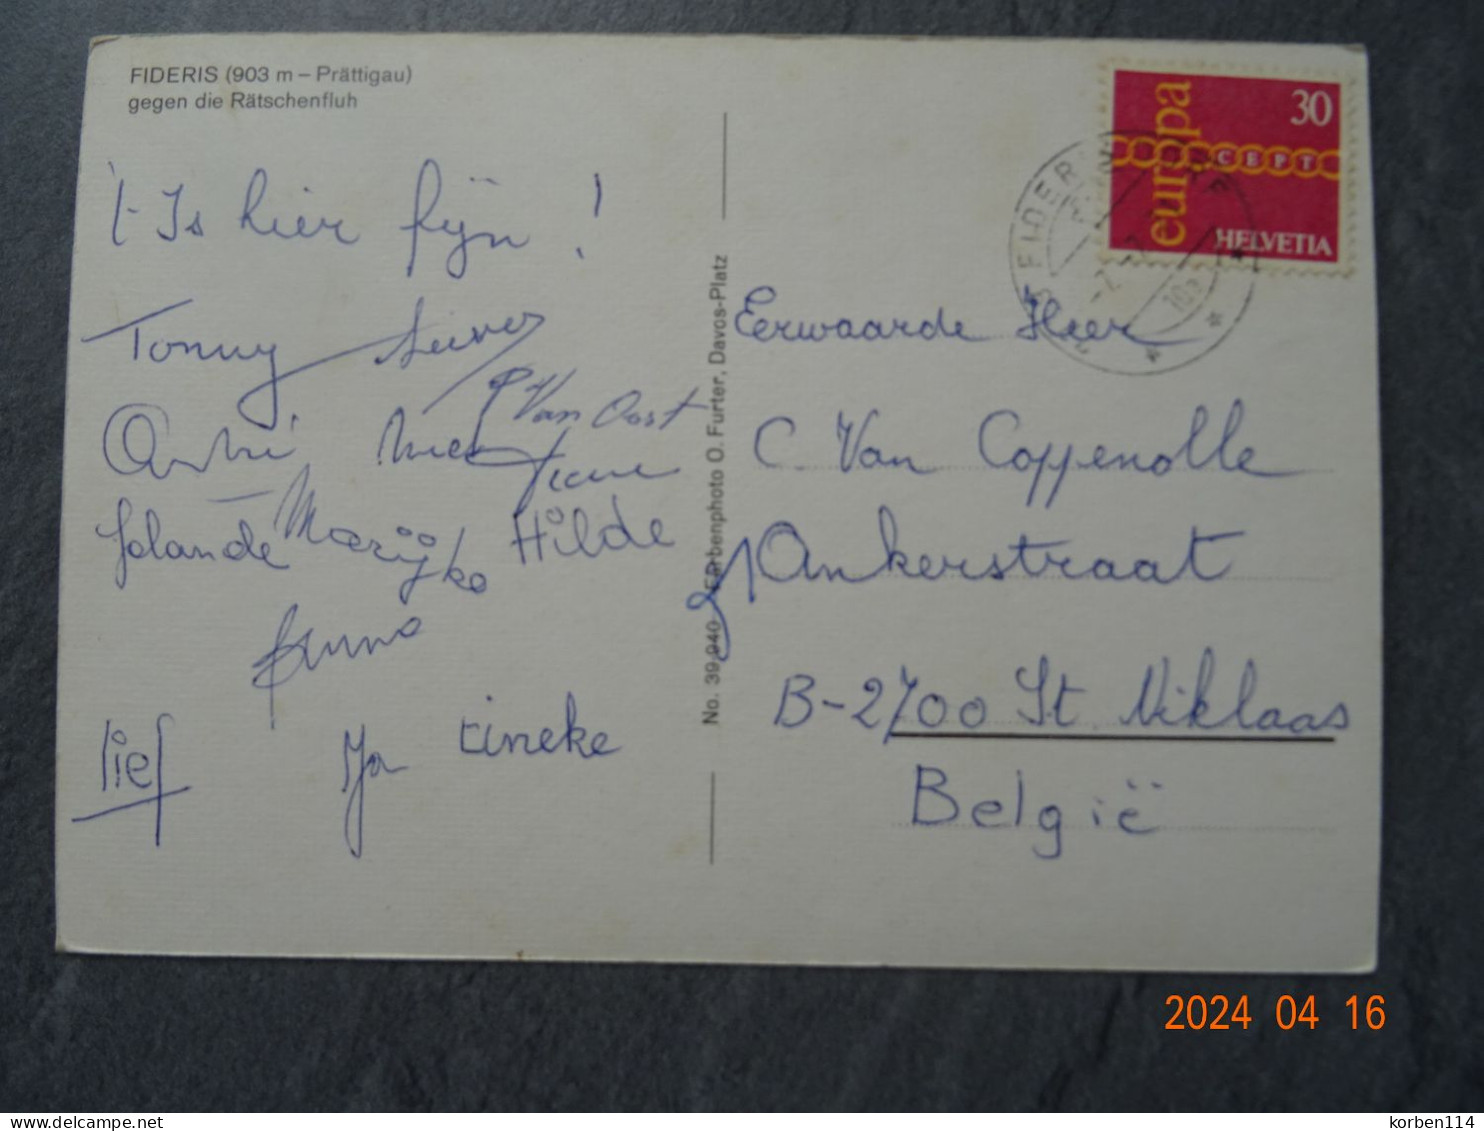 FIDERIS (903 m – Prättigau)
gegen die Rätschenfluh
't Is hier fijn !
Tonny
P Van Oost
André
Jolande Marijke Hilde
lief
Tineke
No. 39 940 Farbenphoto O. Furter, Davos-Platz
europa
30
CEPT
HELVETIA
FIDERIS
Eerwaarde Heer
C. Van Coppenolle
Ankerstraat
B-2700 St. Niklaas
België
2024 04 16
delcampe.net
korben114